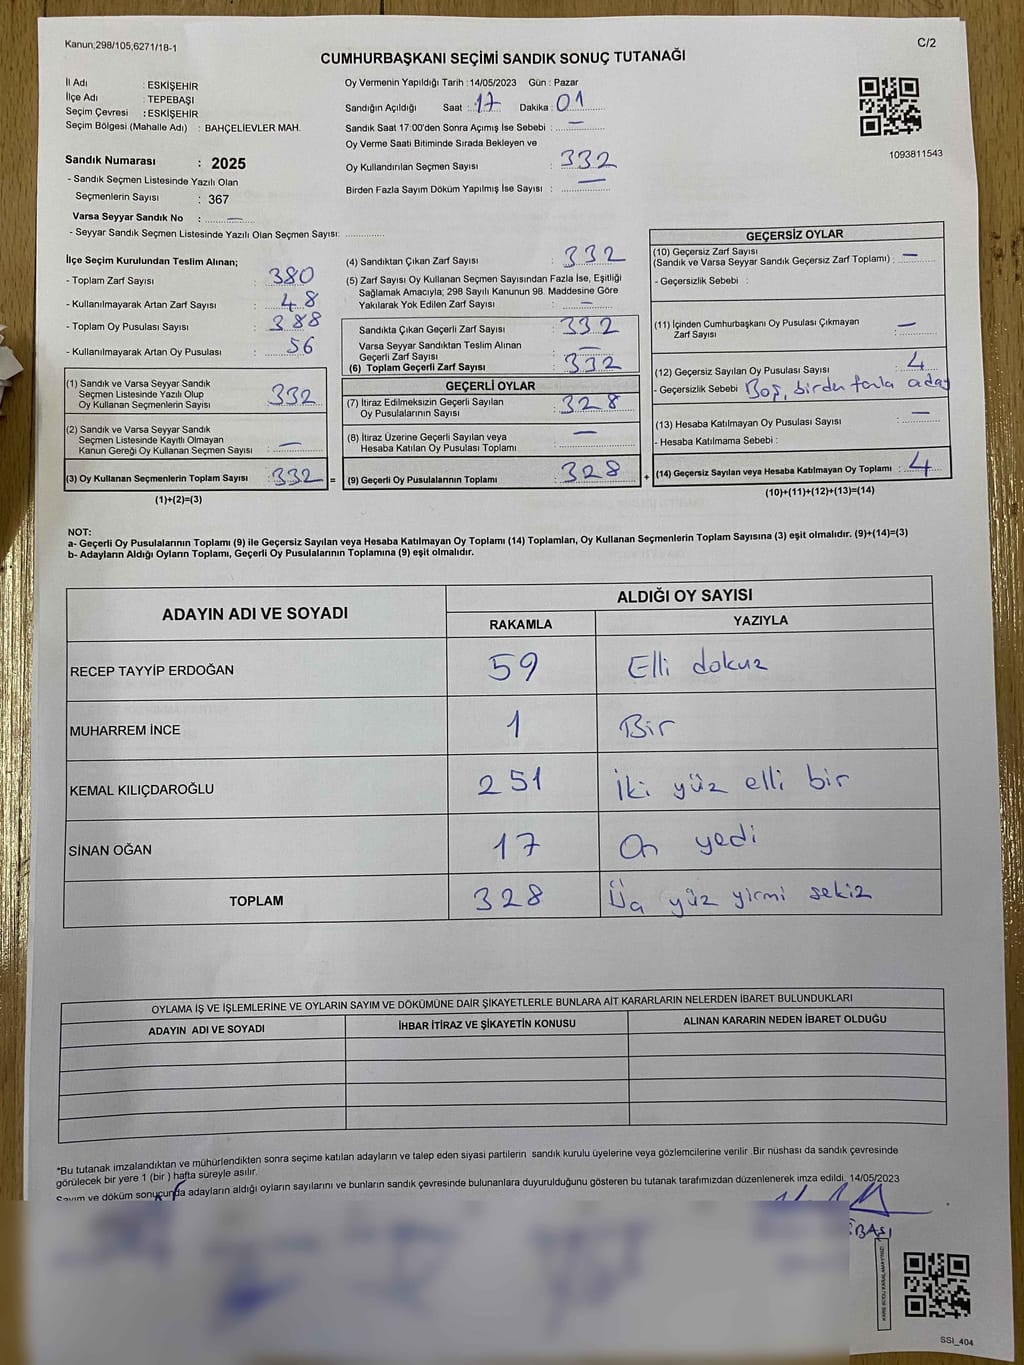 Kanun;298/105,6271/18-1
C/2
CUMHURBAŞKANI SEÇİMİ SANDIK SONUÇ TUTANAĞI
İl Adı : ESKİŞEHİR
İlçe Adı : TEPEBAŞI
Seçim Çevresi : ESKİŞEHİR
Seçim Bölgesi (Mahalle Adı) : BAHÇELİEVLER MAH.
Sandık Numarası : 2025
- Sandık Seçmen Listesinde Yazılı Olan
Seçmenlerin Sayısı : 367
Varsa Seyyar Sandık No : —
- Seyyar Sandık Seçmen Listesinde Yazılı Olan Seçmen Sayısı: ..............
Oy Vermenin Yapıldığı Tarih : 14/05/2023 Gün : Pazar
Sandığın Açıldığı Saat : 17 Dakika : 01
Sandık Saat 17:00'den Sonra Açımış İse Sebebi : —
Oy Verme Saati Bitiminde Sırada Bekleyen ve
Oy Kullandırılan Seçmen Sayısı : 332
Birden Fazla Sayım Döküm Yapılmış İse Sayısı : —
1093811543
İlçe Seçim Kurulundan Teslim Alınan;
- Toplam Zarf Sayısı : 380
- Kullanılmayarak Artan Zarf Sayısı : 48
- Toplam Oy Pusulası Sayısı : 388
- Kullanılmayarak Artan Oy Pusulası : 56
(1) Sandık ve Varsa Seyyar Sandık
Seçmen Listesinde Yazılı Olup
Oy Kullanan Seçmenlerin Sayısı : 332
(2) Sandık ve Varsa Seyyar Sandık
Seçmen Listesinde Kayıtlı Olmayan
Kanun Gereği Oy Kullanan Seçmen Sayısı : —
(3) Oy Kullanan Seçmenlerin Toplam Sayısı : 332 =
(1)+(2)=(3)
(4) Sandıktan Çıkan Zarf Sayısı : 332
(5) Zarf Sayısı Oy Kullanan Seçmen Sayısından Fazla İse, Eşitliği
Sağlamak Amacıyla; 298 Sayılı Kanunun 98. Maddesine Göre
Yakılarak Yok Edilen Zarf Sayısı : —
Sandıkta Çıkan Geçerli Zarf Sayısı : 332
Varsa Seyyar Sandıktan Teslim Alınan
Geçerli Zarf Sayısı : —
(6) Toplam Geçerli Zarf Sayısı : 332
GEÇERLİ OYLAR
(7) İtiraz Edilmeksizin Geçerli Sayılan
Oy Pusulalarının Sayısı : 328
(8) İtiraz Üzerine Geçerli Sayılan veya
Hesaba Katılan Oy Pusulası Toplamı : —
(9) Geçerli Oy Pusulalarının Toplamı : 328 +
GEÇERSİZ OYLAR
(10) Geçersiz Zarf Sayısı
(Sandık ve Varsa Seyyar Sandık Geçersiz Zarf Toplamı) : —
- Geçersizlik Sebebi :
(11) İçinden Cumhurbaşkanı Oy Pusulası Çıkmayan
Zarf Sayısı : —
(12) Geçersiz Sayılan Oy Pusulası Sayısı : 4
- Geçersizlik Sebebi Boş, birden fazla aday
(13) Hesaba Katılmayan Oy Pusulası Sayısı : —
- Hesaba Katılmama Sebebi :
(14) Geçersiz Sayılan veya Hesaba Katılmayan Oy Toplamı : 4
(10)+(11)+(12)+(13)=(14)
NOT:
a- Geçerli Oy Pusulalarının Toplamı (9) ile Geçersiz Sayılan veya Hesaba Katılmayan Oy Toplamı (14) Toplamları, Oy Kullanan Seçmenlerin Toplam Sayısına (3) eşit olmalıdır. (9)+(14)=(3)
b- Adayların Aldığı Oyların Toplamı, Geçerli Oy Pusulalarının Toplamına (9) eşit olmalıdır.
ADAYIN ADI VE SOYADI
ALDIĞI OY SAYISI
RAKAMLA YAZIYLA
RECEP TAYYİP ERDOĞAN 59 Elli dokuz
MUHARREM İNCE 1 Bir
KEMAL KILIÇDAROĞLU 251 İki yüz elli bir
SİNAN OĞAN 17 On yedi
TOPLAM 328 Üç yüz yirmi sekiz
OYLAMA İŞ VE İŞLEMLERİNE VE OYLARIN SAYIM VE DÖKÜMÜNE DAİR ŞİKAYETLERLE BUNLARA AİT KARARLARIN NELERDEN İBARET BULUNDUKLARI
ADAYIN ADI VE SOYADI İHBAR İTİRAZ VE ŞİKAYETİN KONUSU ALINAN KARARIN NEDEN İBARET OLDUĞU
*Bu tutanak imzalandıktan ve mühürlendikten sonra seçime katılan adayların ve talep eden siyasi partilerin sandık kurulu üyelerine veya gözlemcilerine verilir .Bir nüshası da sandık çevresinde
görülecek bir yere 1 (bir ) hafta süreyle asılır.
Sayım ve döküm sonucunda adayların aldığı oyların sayılarını ve bunların sandık çevresinde bulunanlara duyurulduğunu gösteren bu tutanak tarafımızdan düzenlenerek imza edildi. 14/05/2023
SSI_404